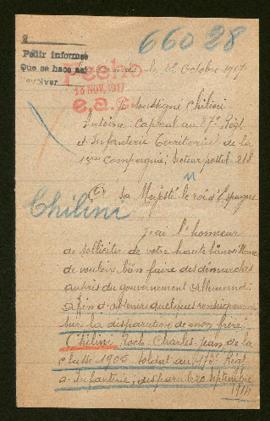 66028
Pedir informes
Que se hace así
Fecho
15 NOV. 1917
e.a.
le 22 Octobre 1917
Le Soussigné Chilini
Antoine Caporal au 37e Régt
d'Infanterie Territoriale de la
1ere Compagnie, Secteur postal 218
à
Sa Majesté le roi d'Espagne
Chilini
j'ai l'honneur
de solliciter de votre haute bienveillance
de vouloir bien faire des demarches
auprès du gouvernement Allemand
afin d'obtenir quelques renseignements
sur la disparution de mon frère
Chilini Roch Charles jean de la
classe 1906 soldat au 173e Régt
d'Infanterie, disparu le 20 septembre
1914